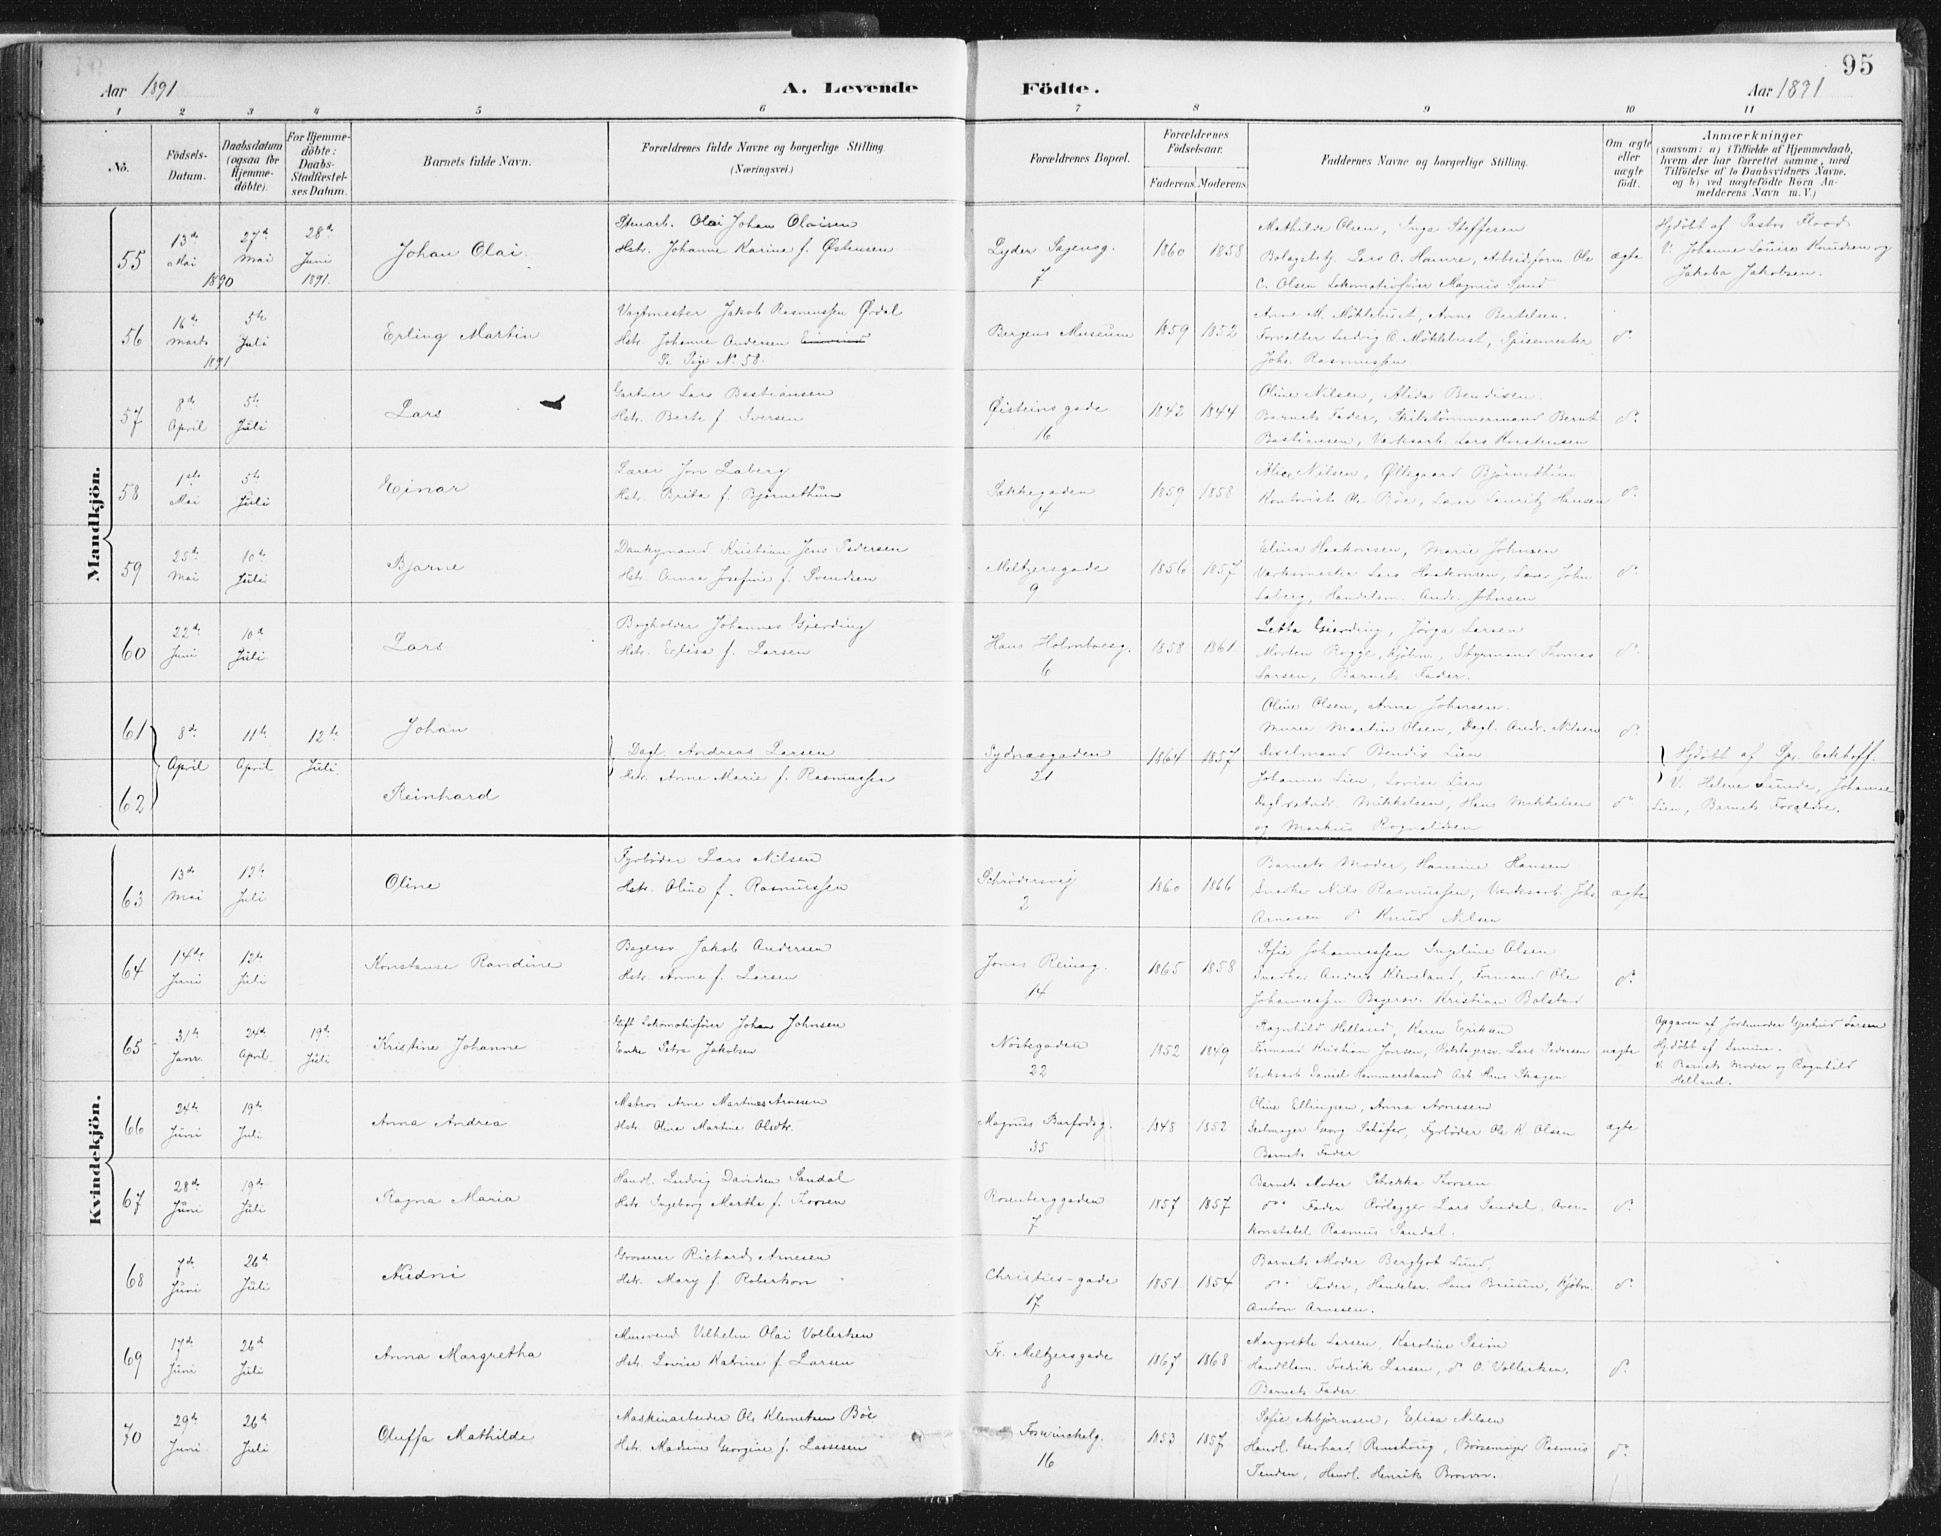 95
Aar 1891
A. Levende Födte.
Aar 1891
1 2 3 4 5 6 7 8 9 10 11
No.
Födsels-Datum.
Daabsdatum (ogsaa for Hjemme-döbte).
For Hjemme-döbte: Daabs-Stadfæstel-ses Datum.
Barnets fulde Navn.
Forældrenes fulde Navne og borgerlige Stilling. (Næringsvei.)
Forældrenes Bopæl.
Forældrenes Födselsaar.
Faderens. Moderens.
Faddernes Navne og borgerlige Stilling.
Om ægte eller uægte födt.
Anmærkninger
(saasom: a) i Tilfælde af Hjemmedaab,
hvem der har forrettet samme, med
Tilföielse af to Daabsvidners Navne,
og b) ved uægtefödte Börn An-
melderens Navn m. V.)
Mandkjön.
55 13de Mai 27de Mai 28de Juni Johan Olai.
1890 1891.
Stenarb. Olai Johan Olaisen
Hstr. Johanne Karine f. Østensen
Lyder Sagensg. 7
1860 1858
Mathilde Olsen, Inga Steffesen
Lars O. Hamre, Arbeidsform. Ole
C. Olsen Lokomotivfører Magnus
ægte
Hjdöbt af Pastor Flood
V. Johanne Louise Knudsen og
Jakoba Jakobsen.
56 16de Marts 5te Juli Erling Martin
1891
Vagtmester Jakob Rasmussen Ødal
Hstr. Johanne Andersen
Se N. 58.
Bergens Museum
1859 1852
Anne M. Møklebust, Anne Bertelsen.
Forvalter Ludvig O. Møklebust, Spisemester
Johs. Rasmussen
do
57 8de April 5te Juli Lars
Gartner Lars Bastiansen
Hstr. Berte f. Iversen
Øisteins gade 16
1842 1844
Oline Nilsen, Alida Bendixen.
Barnets Fader, Skibstömmermand Bernt
Bastiansen, Værksarb. Lars Kristensen
do
58 1ste Mai 5te Juli Einar
Lærer Jon Laberg
Hstr. Brita f. Bjørnethun
Sækkegaden 4
1859 1858
Alice Nilsen, Øllegaard Bjørnethun
Kontorist Ole Böe, Lærer Lauritz Hansen
do
59 25de Mai 10de Juli Bjarne
Kristian Jens Pedersen
Hstr. Anna Josefine f. Svendsen
Meltzersgade 9
1856 1857
Elina Haakonsen, Marie Johnsen
Værksmester Lars Haakonsen, Lærer John
Laberg, Handelsm. Andr. Johnsen
do
60 22de Juni 10de Juli Lars
Bogholder Johannes Gjerding
Hstr. Elisa f. Larsen
Hans Holmboesg. 6
1858 1861
Letta Gjerding, Jörga Larsen
Morten Rogge, Kjöbm., Styrmand Thomas
Larsen, Barnets Fader.
do
61 8de April 11te April 12te Juli. Johan
62 Reinhard
Dagl. Andreas Larsen
Hstr. Anne Marie f. Rasmussen
Sydnæsgaden 21
1864 1857
Oline Olsen, Anna Johnsen.
Murer Martin Olsen, Dagl. Andr. Nilsen
Bendix Lien
do
Johanne Lien, Lovise Lien
Dagl. Andr. Mikkelsen, Hans Mikkelsen
og Markus Rognaldsen
do
Hjdöbt af Spr. Eckhoff.
V. Helene Sunde, Johanne
Lien, Barnets Forældre.
Kvindekjön.
63 13de Mai 12te Juli Oline
Fyrböder Lars Nilsen
Hstr. Oline f. Rasmussen
Schrödersvej 2
1860 1866
Barnets Moder, Hansine Hansen
Snedker Nils Rasmussen, Værksarb. Johs.
Arnesen do Knud Nilsen
ægte
64 14de Juni 12te Juli Konstanse Randine
Bagersv. Jakob Andersen
Hstr. Anne f. Larsen
Jonas Reinsg. 14
1865 1858
Sofie Johannessen Ingeline Olsen
Snedker Anders Kleveland, Formand Ole
Johannessen Bagersv. Kristian Bolstad
do
65 31te Janr. 24de April 19te Juli Kristine Johanne
Gift Lokomotivförer Johan Johnsen
Enke Petra Jakobsen
Nöstegaden 22
1852 1849
Ragnhild Helland, Karen Eriksen
Formand Kristian Jonsen, Lars Pedersen
Værksarb Daniel Hammersland Arb Hans Skagen
uægte
Opgaven af Jordemoder Gjertrud Larsen
Hjdöbt af Samme.
V. Barnets Moder og Ragnhild
Helland.
66 24de Juni 19de Juli Anna Andrea
Matros Arne Martines Arnesen
Hstr. Oline Martine Olsdtr.
Magnus Barfodsg. 35
1848 1852
Oline Ellingsen, Anna Arnesen
Seilmager Georg Schäfer, Fyrböder Ole K. Olsen
Barnets Fader
ægte
67 28de Juni 19de Juli Ragna Maria
Handl. Ludvig Davidsen Sandal
Hstr. Ingeborg Marthe f. Thorsen
Rosenberggaden 7
1857 1857
Barnets Moder Thorsen
do Fader Rörlægger Lars Sandal, Over-
konstabel Rasmus Sandal.
do
68 7de Juni 26de Juli
Grosserer Richard Arnesen
Hstr. Mary f. Robertson
Christies-gade 17
1851 1854
Barnets Moder Bergljot Lund,
do Fader, Handelsr. Hans Bruun, Kjöbm.
Anton Arnesen.
do
69 17de Juni 26de Juli Anna Margretha
Mursvend Vilhelm Olai Vollertsen
Hstr. Lovise Katrine f. Larsen
Fr. Meltzersgade 8
1867 1868
Margrethe Larsen, Karoline
Handelsm. Fredrik Larsen, do O. Vollertsen,
Barnets Fader.
do
70 29de Juni 26de Juli Oluffa Mathilde
Maskinarbeider Ole Klemetsen Böe
Hstr. Madsine Georgine f. Lassesen
Forwinckelg. 16
1853 1857
Sofie Asbjörnsen, Elisa Nilsen
Handl. Gerhard Börsemager Rasmus
Tenden, Handl. Henrik Brown.
do